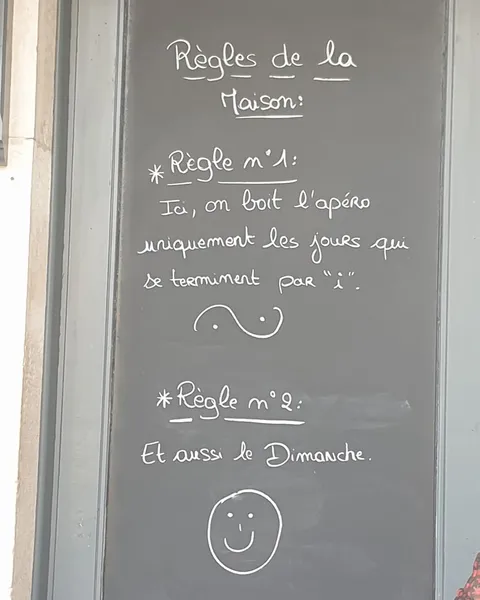 Règles de la
Maison:
* Règle n°1:
Ici, on boit l'apéro
uniquement les jours qui
se terminent par "i".
* Règle n°2:
Et aussi le Dimanche.